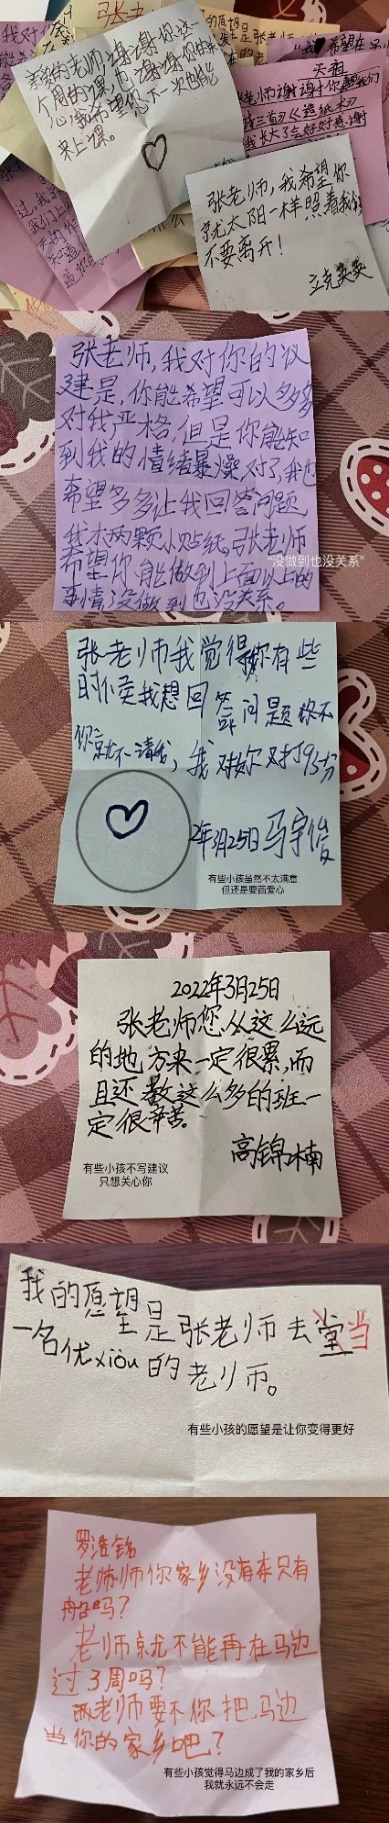 亲爱的老师,谢谢你这一
个周的课,也谢谢你的关
心,我希望您下一次也能
来上课。
天祖
我长大了会好好感谢
张老师,我希望你
就尤太阳一样照着我们
不要离开!
立克英英
张老师,我对你的议
建是,你能希望可以多多
对我严格,但是你能知
到我的情绪暴燥,对了,我也
希望多多让我回答问题
我才两颗小贴纸,张老师
希望你能做到上面以上的
事情没做到也没关系。
"没做到也没关系"
张老师我觉得你有些
时候我想回答问题你不
你就不请我,我对你对打95分
2年3月25日 马宇俊
有些小孩虽然不太满意
但还是要画爱心
2022年3月25日
张老师您从这么远
的地方来一定很累,而
且还教这么多的班一
定很辛苦。
高锦楠
有些小孩不写建议
只想关心你
我的愿望是张老师去堂当
一名优xiòu的老师。
有些小孩的愿望是让你变得更好
罗浩铭
老师师你家乡没有车只有
船吗?
老师就不能再在马边
过了周吗?
老师要不你把马边
当你的家乡吧?
有些小孩觉得马边成了我的家乡后
我就永远不会走